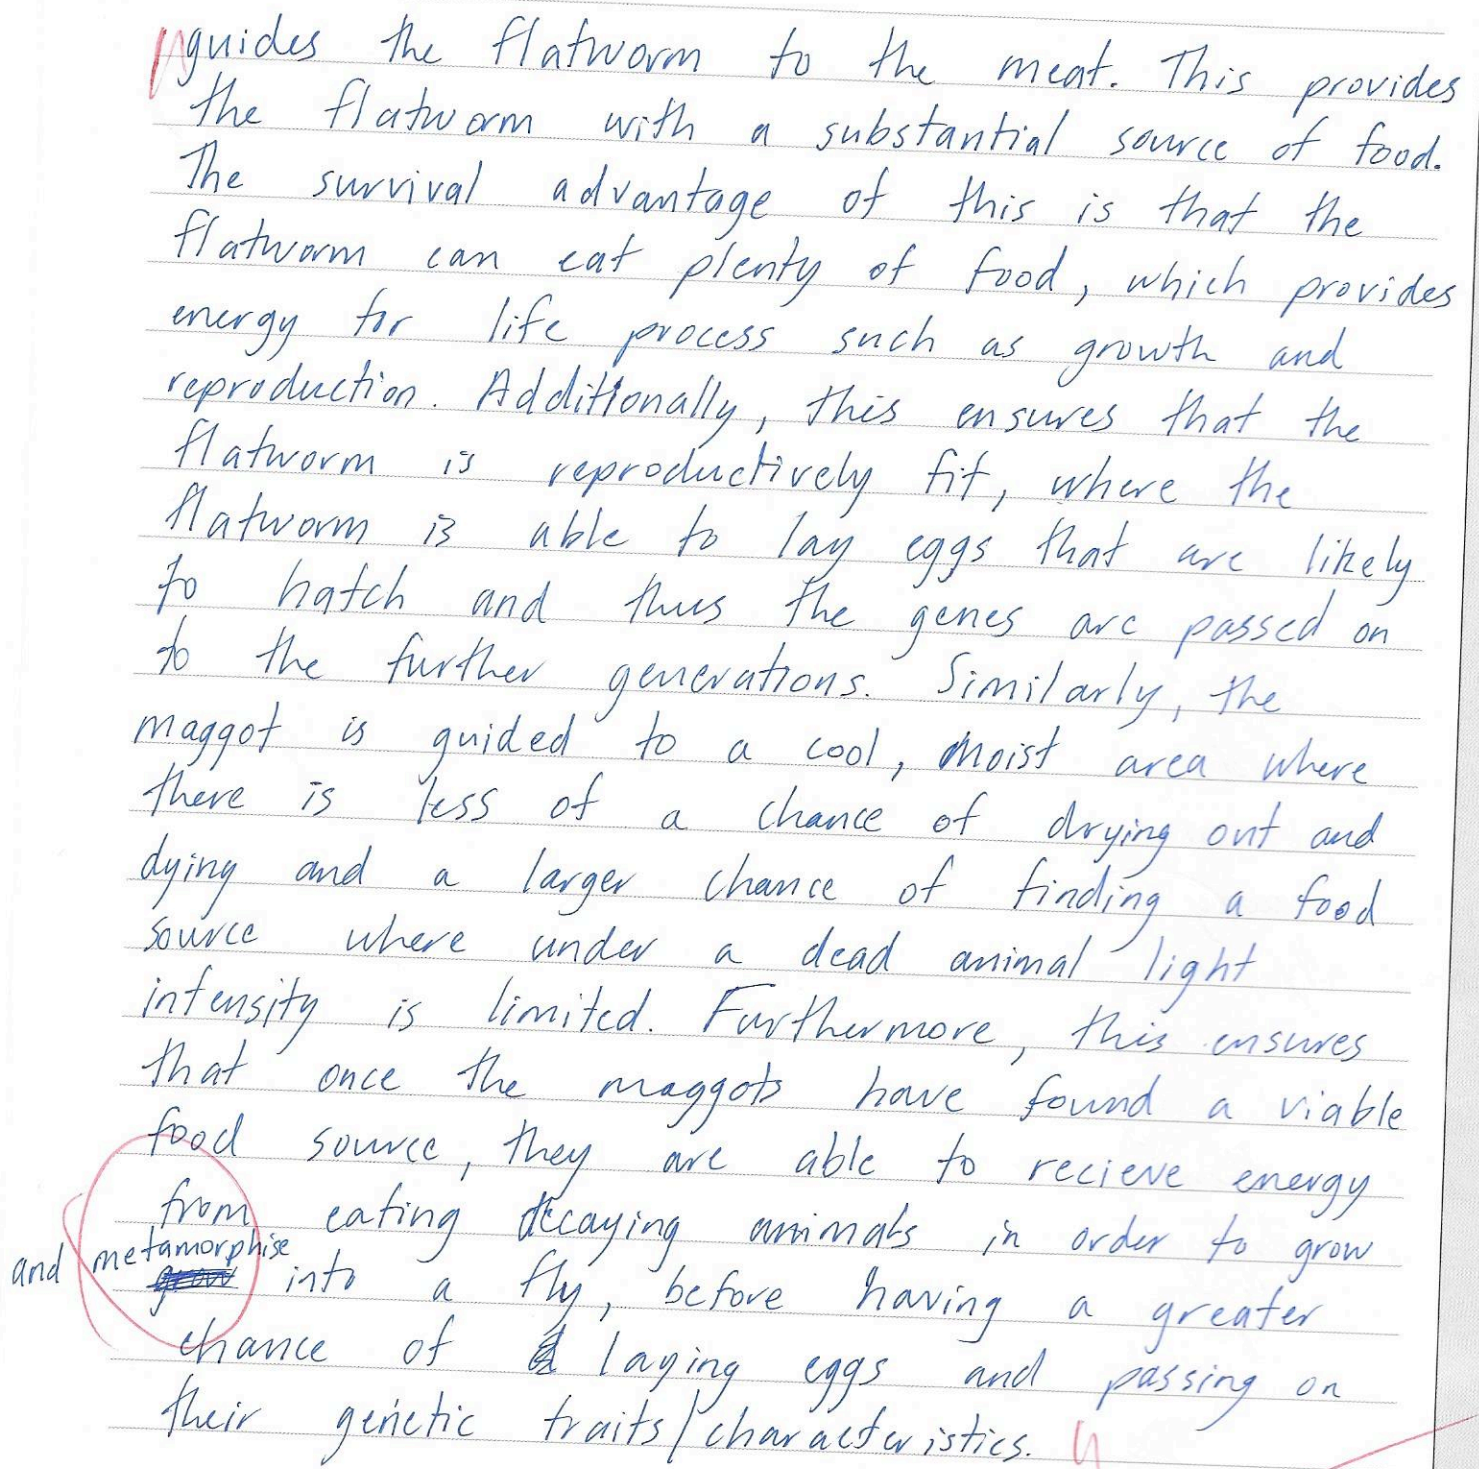 guides the flatworm to the meat. This provides
the flatworm with a substantial source of food.
The survival advantage of this is that the
flatworm can eat plenty of food, which provides
energy for life process such as growth and
reproduction. Additionally, this ensures that the
flatworm is reproductively fit, where the
flatworm is able to lay eggs that are likely
to hatch and thus the genes are passed on
to the further generations. Similarly, the
maggot is guided to a cool, moist area where
there is less of a chance of drying out and
dying and a larger chance of finding a food
source where under a dead animal light
intensity is limited. Furthermore, this ensures
that once the maggots have found a viable
food source, they are able to recieve energy
from eating decaying animals in order to grow
and metamorphise into a fly, before having a greater
chance of laying eggs and passing on
their genetic traits/characteristics.